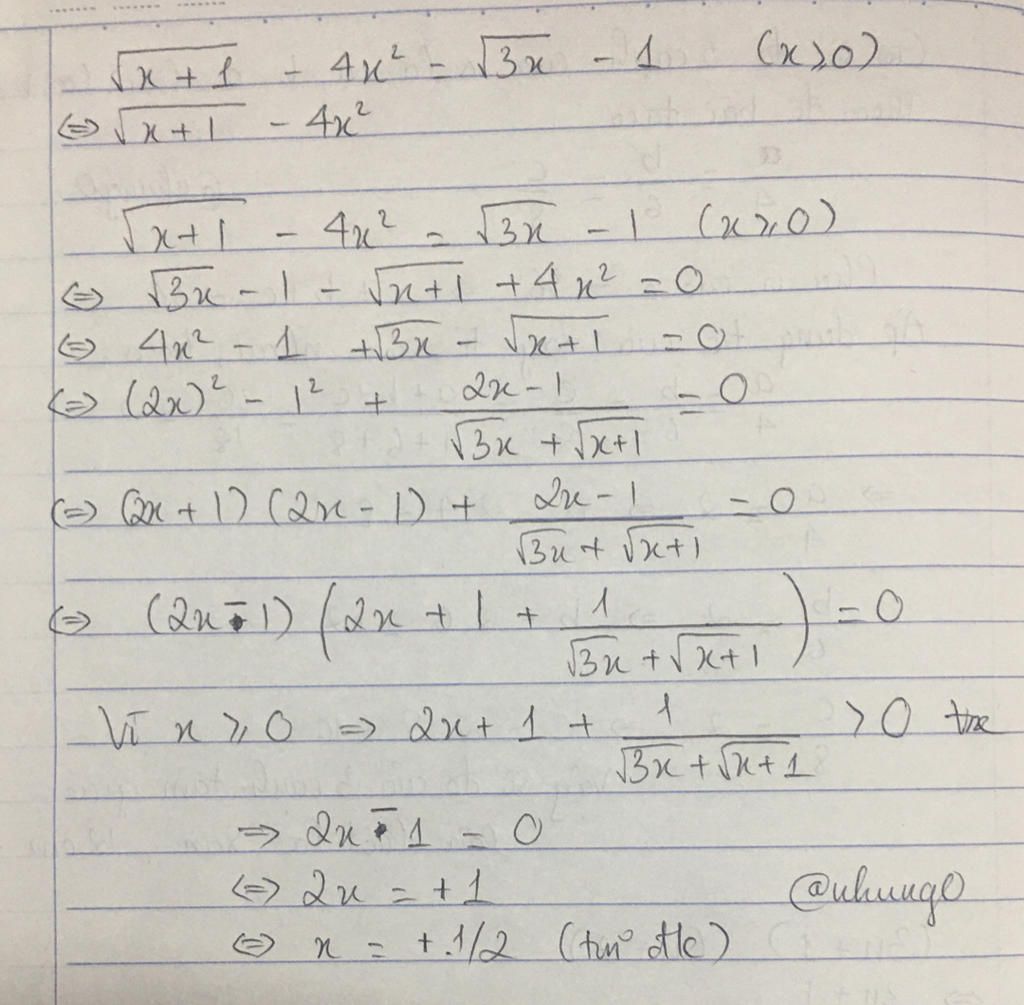 √(x+1) - 4x² = √(3x) - 1 (x ⩾ 0)
⇔ √(x+1) - 4x²
√(x+1) - 4x² = √(3x) - 1 (x ⩾ 0)
⇔ √(3x) - 1 - √(x+1) + 4x² = 0
⇔ 4x² - 1 + √(3x) - √(x+1) = 0
⇔ (2x)² - 1² + (2x - 1)/(√(3x) + √(x+1)) = 0
⇔ (2x + 1)(2x - 1) + (2x - 1)/(√(3x) + √(x+1)) = 0
⇔ (2x - 1)(2x + 1 + 1/(√(3x) + √(x+1))) = 0
Vì x ⩾ 0 ⇒ 2x + 1 + 1/(√(3x) + √(x+1)) > 0
⇒ 2x - 1 = 0
⇔ 2x = +1
⇔ x = +1/2 (tm đk)